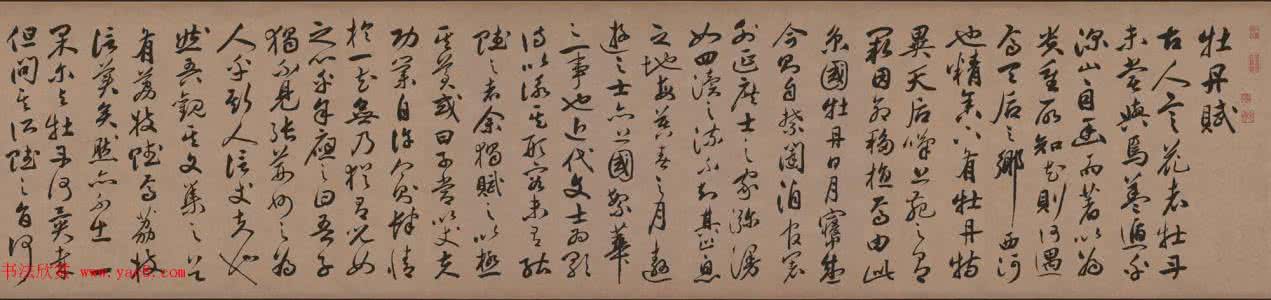 牡丹賦
古人言花者牡丹
未嘗與焉蓋遁乎
深山自幽而著以為
貴重所知花則何遇
焉天后之鄉西河
也精舍下有牡丹特
異天后嘆上苑之有
闕因命移植焉由此
京國牡丹日月寖盛
今則自禁闥洎官署
外延庶士之家瀰漫
如四瀆之流不知其止息
之地每暮春之月遨
遊之士亦上國繁華
之一事也近代文士為歌
詩以詠其形容未有能
賦之者余獨賦之以極
其美或曰子常以丈夫
功業自許今則肆情
於一花無乃猶有兒女
之心乎余應之曰吾子
獨不見張荊州之為
人乎斯人信丈夫也
然吾觀其文集之首
有荔枝賦焉荔枝
信美矣然亦不出一
果爾与牡丹何異哉
但問其所賦之旨何
书法欣赏